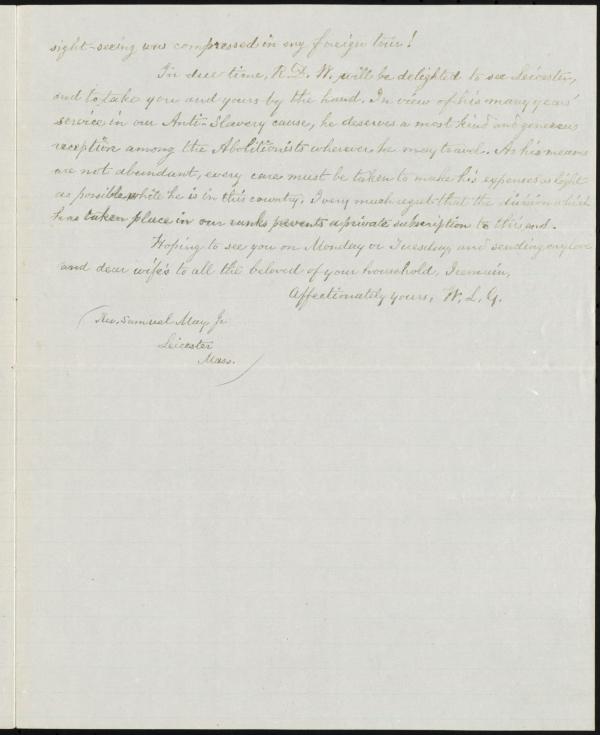 sight-seeing was compressed in my foreign tour!
In due time, R. D. W. will be delighted to see Leicester,
and to take you and yours by the hand. In view of his many years'
service in our Anti-Slavery cause, he deserves a most kind and generous
reception among the Abolitionists wherever he may travel. As his means
are not abundant, every care must be taken to make his expenses as light
as possible while he is in this country. I very much regret that the division which
has taken place in our ranks prevents a private subscription to this end.
Hoping to see you on Monday or Tuesday, and sending my love
and dear wife's to all the beloved of your household, I remain,
Affectionately yours, W. L. G.
Rev. Samuel May, Jr
Leicester
Mass.